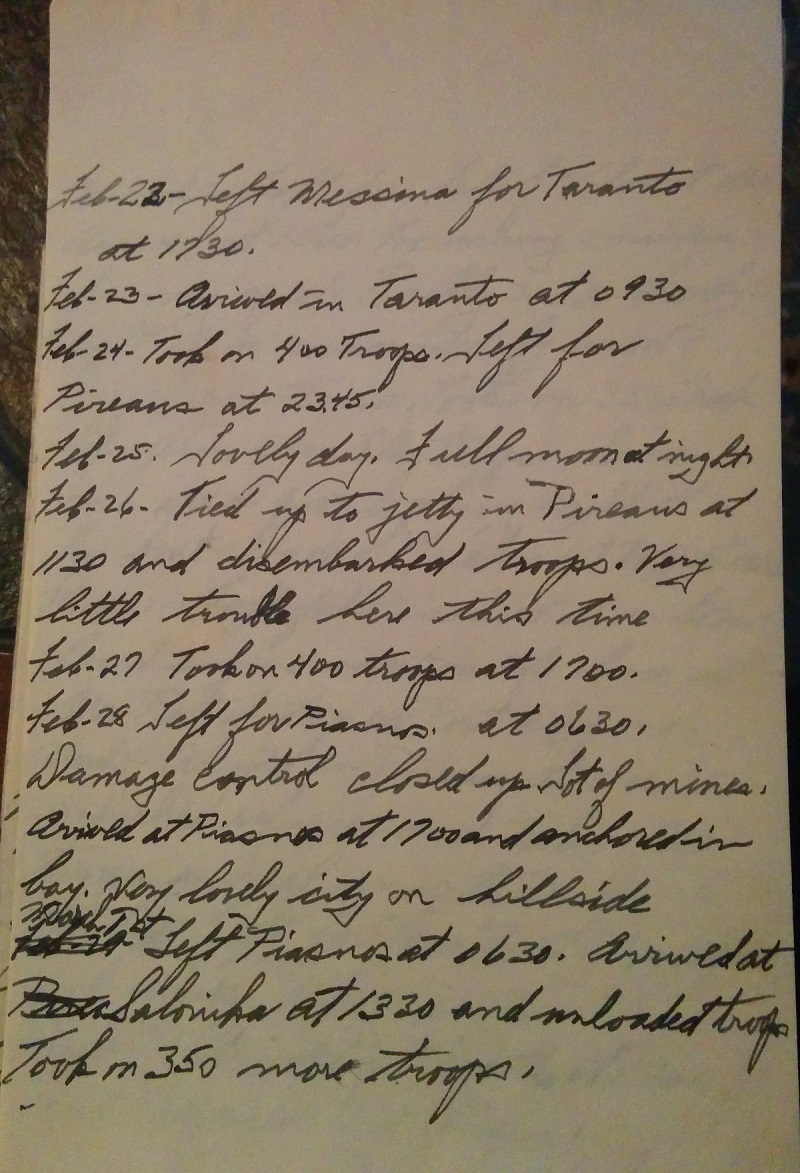 Feb-22- Left Messina for Taranto
at 1730.
Feb-23- Arived in Taranto at 0930
Feb-24- Took on 400 Troops. Left for
Pireaus at 2345.
Feb-25. Lovely day. Full moon at night.
Feb-26- Tied up to jetty in Pireaus at
1130 and disembarked troops. Very
little trouble here this time
Feb-27 Took on 400 troops at 1700.
Feb-28 Left for Piasnos. at 0630.
Damage control closed up. Lot of mines.
Arived at Piasnos at 1700 and anchored in
bay. Very lovely city on hillside
March 1st
Left Piasnos at 0630. Arrived at
Salonika at 1330 and unloaded troops
Took on 350 more troops.